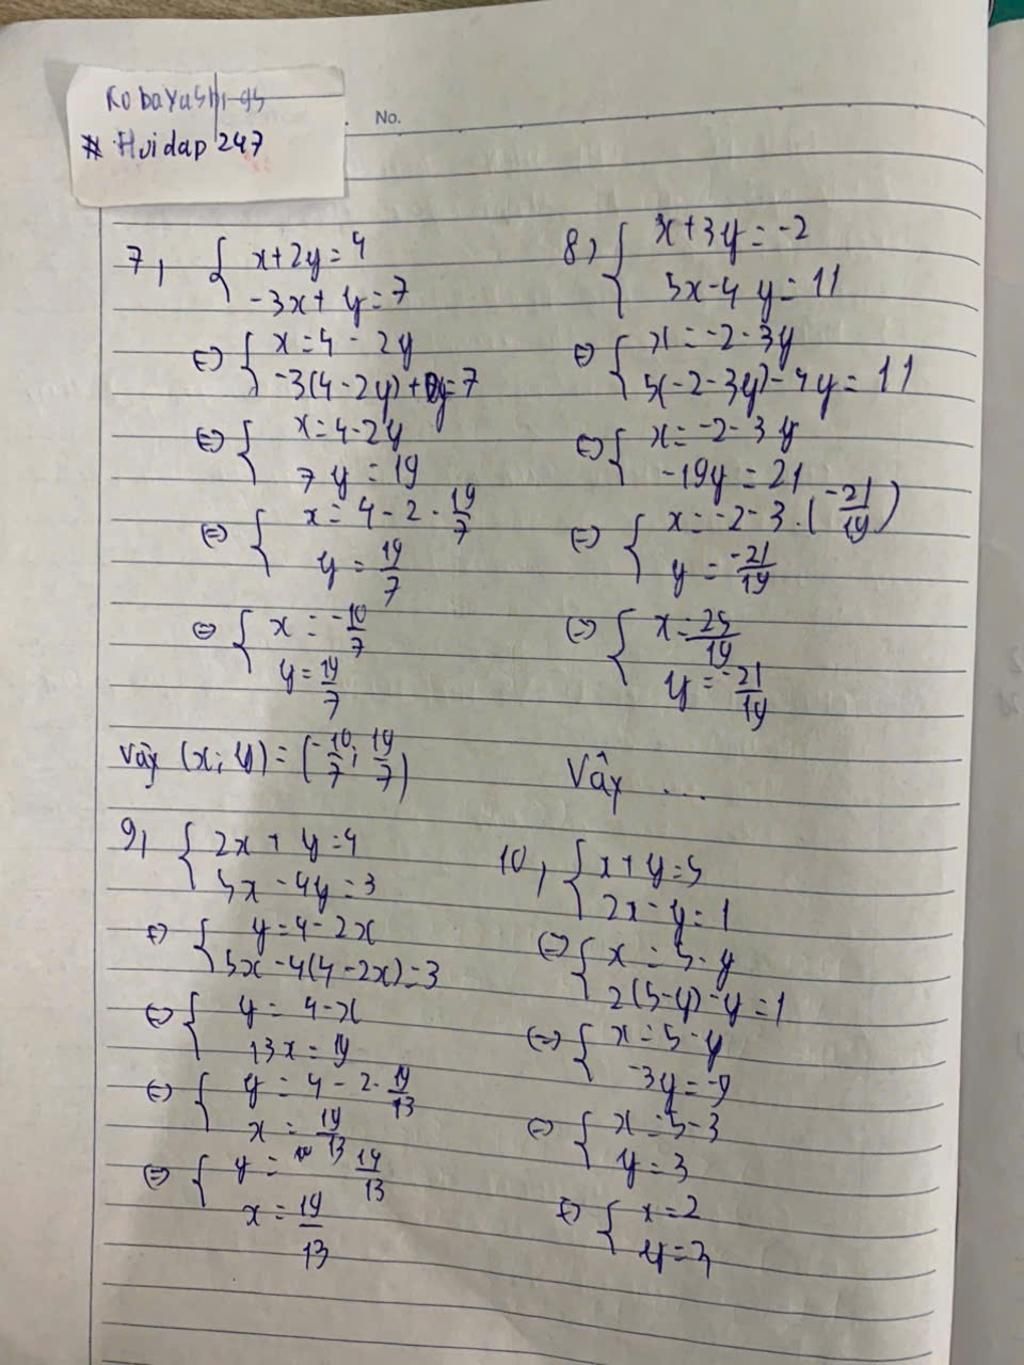 Kobayashi-95
# Hoidap 247
No.
7, { x+2y=4
-3x+y=7
⇔ { x=4-2y
-3(4-2y)+y=7
⇔ { x=4-2y
7y=19
⇔ { x=4-2·19/7
y=19/7
⇔ { x=-10/7
y=19/7
Vậy (x;y)=(-10/7; 19/7)
8, { x+3y=-2
5x-4y=11
⇔ { x=-2-3y
5(-2-3y)-4y=11
⇔ { x=-2-3y
-19y=21
⇔ { x=-2-3.(-21/19)
y=-21/19
⇔ { x=25/19
y=-21/19
Vậy ...
9, { 2x+y=4
5x-4y=3
⇔ { y=4-2x
5x-4(4-2x)=3
⇔ { y=4-x
13x=19
⇔ { y=4-2·19/13
x=19/13
⇔ { y=14/13
x=19/13
10, { x+y=5
2x-y=1
⇔ { x=5-y
2(5-y)-y=1
⇔ { x=5-y
-3y=-9
⇔ { x=5-3
y=3
⇔ { x=2
y=3